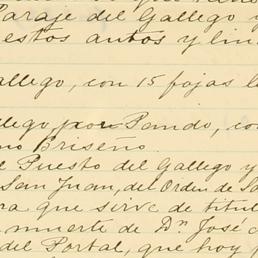 Paraje del Gallego y
estos autos y lin
allego, con 15 fojas
llego, por Pando, co
no Briseño.
e Puesto del Gallego y
San Juan, del Orden de Sa
ra que sirve de titul
muerte de Dn. José
del Portal, que hoy